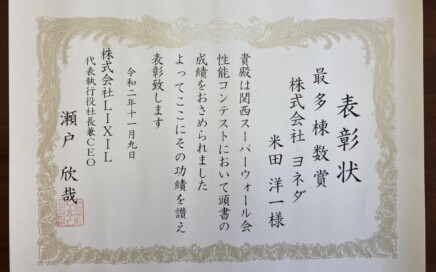 表彰状
最多棟数賞
株式会社 ヨネダ
米田 洋一様
貴殿は関西スーパーウォール会
性能コンテストにおいて頭書の
成績をおさめられました
よってここにその功績を讃え
表彰致します
令和二年十一月九日
株式会社LIXIL
代表執行役社長兼CEO
瀬戸 欣哉